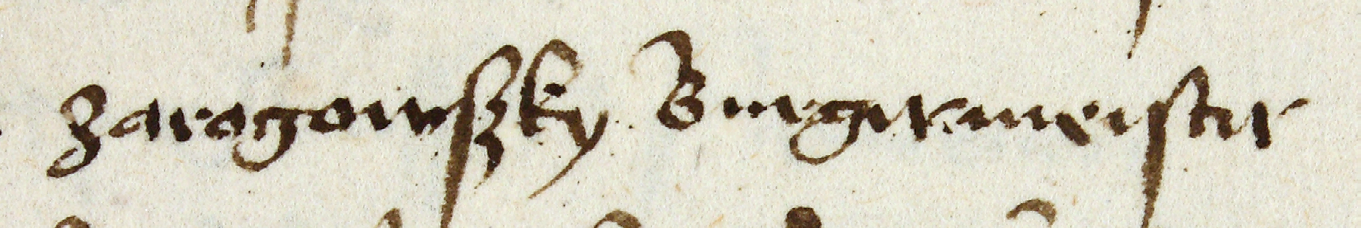 Zarogowſzky Burgermeiſter